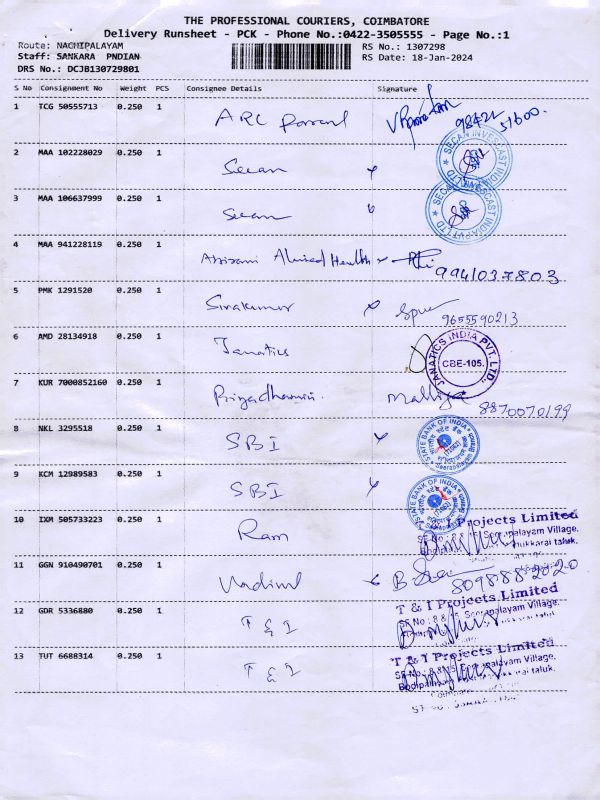 THE PROFESSIONAL COURIERS, COIMBATORE
Delivery Runsheet - PCK - Phone No.:0422-3505555 - Page No.:1
Route: NACHIPALAYAM RS No.: 1307298
Staff: SANKARA PNDIAN RS Date: 18-Jan-2024
DRS No.: DCJB130729801
S No Consignment No Weight PCS Consignee Details Signature
1 TCG 50555713 0.250 1 ARC Parcel 98422 51600
2 MAA 102228029 0.250 1 Secan SECAN INVESCAST INDIA PVT LTD
3 MAA 106637999 0.250 1 Secan SECAN INVESCAST INDIA PVT LTD
4 MAA 941228119 0.250 1 Health 9941037803
5 PMK 1291520 0.250 1 Sivakumar 9655590213
6 AMD 28134918 0.250 1 Janatics JANATICS INDIA PVT. LTD., CBE-105.
7 KUR 7000852160 0.250 1 Priyadharsini. 8870070199
8 NKL 3295518 0.250 1 SBI STATE BANK OF INDIA
9 KCM 12989583 0.250 1 SBI STATE BANK OF INDIA
10 IXM 505733223 0.250 1 Ram Projects Limited
Seerapalayam Village,
11 GGN 910490701 0.250 1 8098882020
12 GDR 5336880 0.250 1 T & I T & I Projects Limited
Seerapalayam Village,
13 TUT 6688314 0.250 1 T & I T & I Projects Limited
Seerapalayam Village,